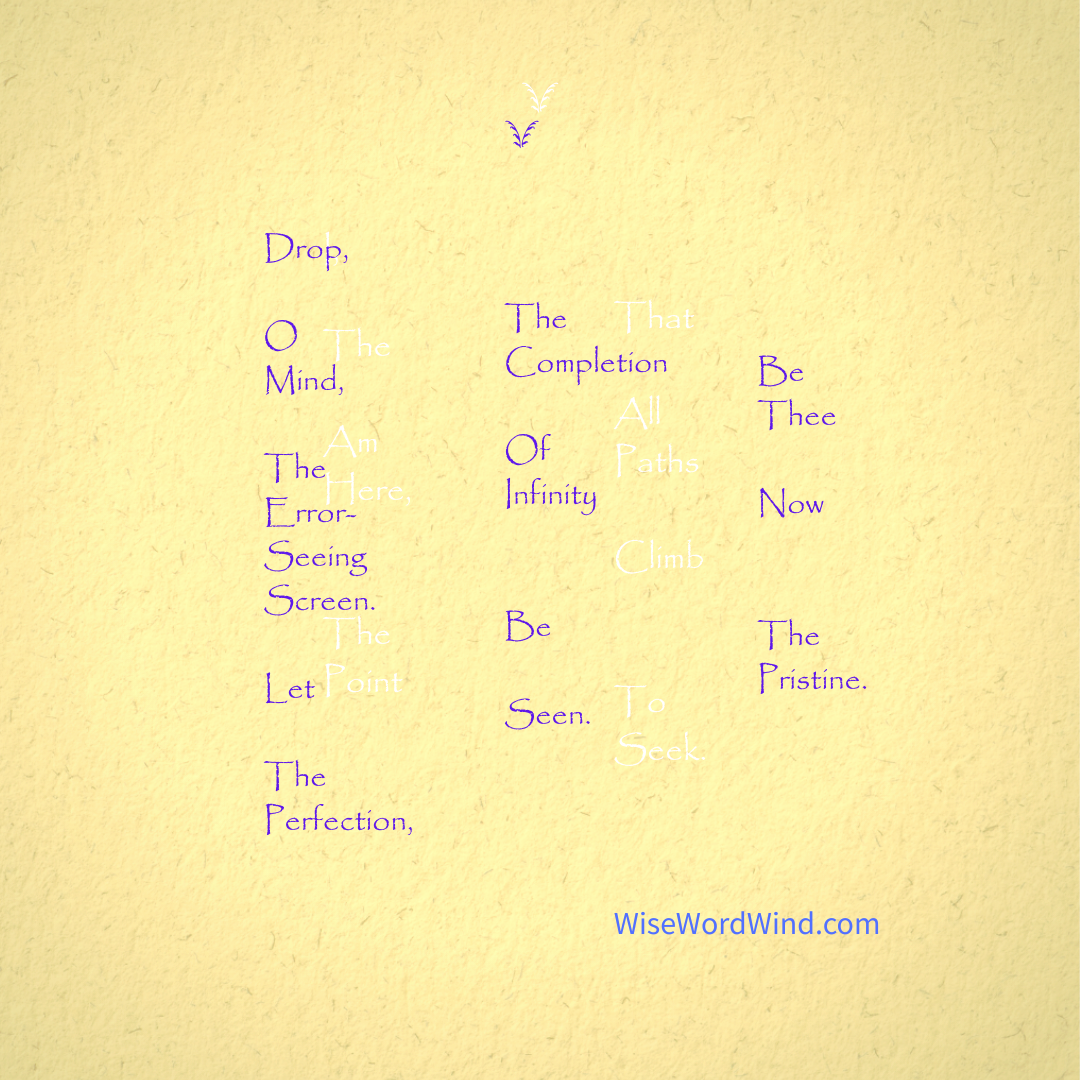 Drop,
O
Mind,
The
Error-
Seeing
Screen.
Let
The
Perfection,
The
Completion
Of
Infinity
Be
Seen.
Be
Thee
Now
The
Pristine.
The
Am
Here,
The
Point
That
All
Paths
Climb
To
Seek.
WiseWordWind.com